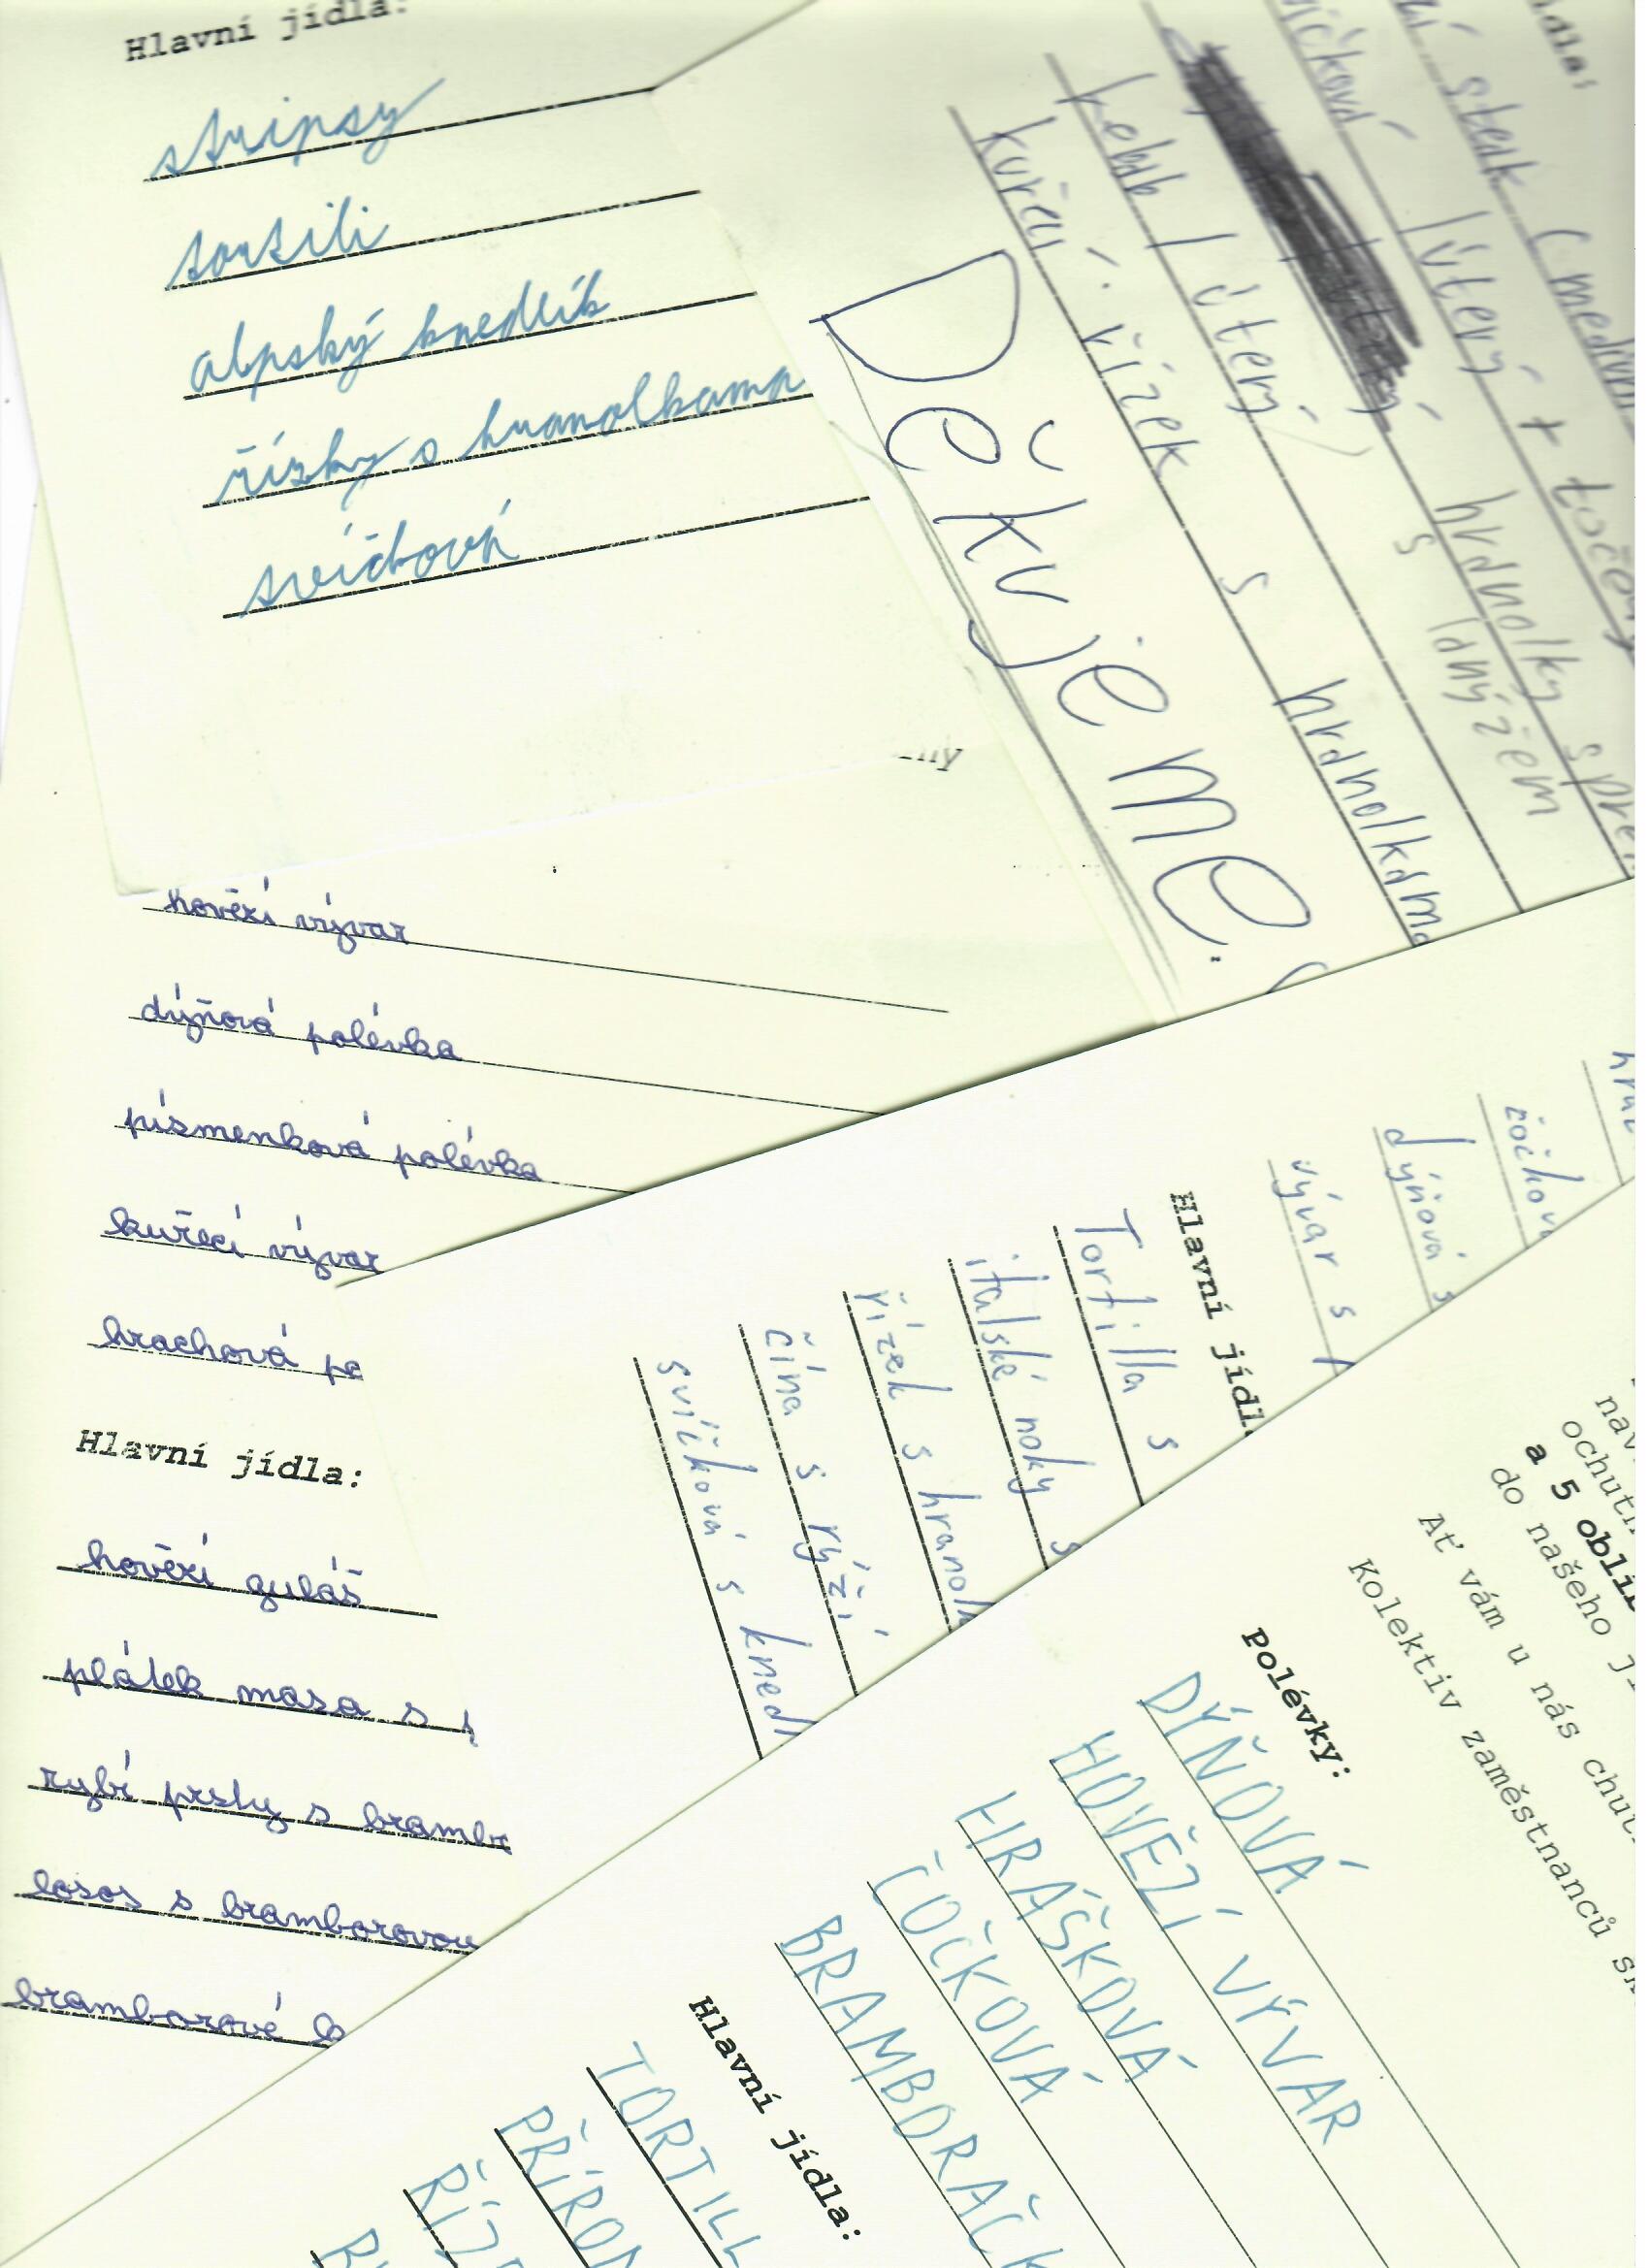 Hlavní jídla:
stripsy
tortili
alpský knedlík
řízky s hranolkama
svíčková
jídla:
steak (medium
svíčková (úterý + točený
hrdnolky
kebab (úterý)
s ldnýžem
kuřecí řízek s hrdnolkdmd
Děkujeme.
hovězí vývar
dýňová polévka
písmenková polévka
kuřecí vývar
hrachová po
Hlavní jídla:
hovězí guláš
plátek masa s
rybí prsty s brambr
losos s bramborovou
bramborové
dýňová s
vývar s
Hlavní jídl
Tortilla s
italské noky s
řízek s hranolk
čína s rýží
svíčková s kned
ochutn
a 5 oblíb
do našeho j
Ať vám u nás chut
Kolektiv zaměstnanců šk
Polévky:
DÝŇOVÁ
HOVĚZÍ VÝVAR
HRÁŠKOVÁ
ČOČKOVÁ
BRAMBORAČK
Hlavní jídla:
TORTILL
PŘÍROD
ŘÍZE